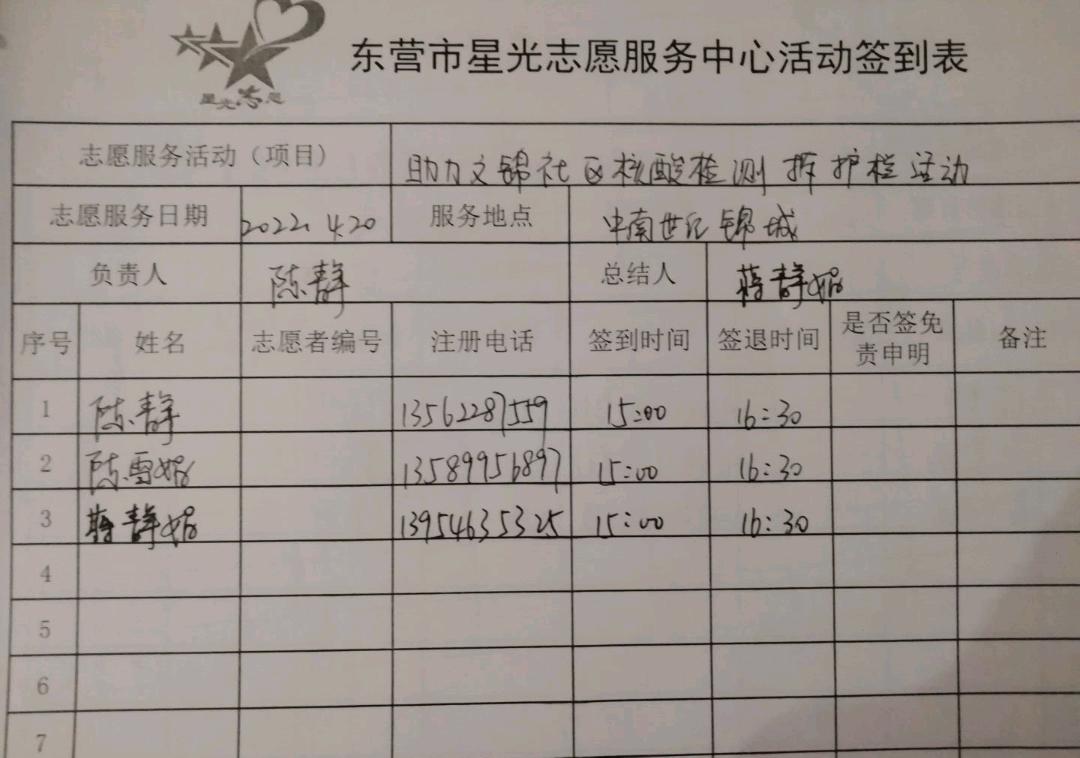 星光志愿
东营市星光志愿服务中心活动签到表
志愿服务活动（项目） 助力文锦社区核酸检测 拆护栏活动
志愿服务日期 2022.4.20 服务地点 中南世纪锦城
负责人 陈静 总结人 蒋静妮
序号 姓名 志愿者编号 注册电话 签到时间 签退时间 是否签免责申明 备注
1 陈静 13562287559 15:00 16:30
2 陈雪妮 13589956897 15:00 16:30
3 蒋静妮 13954635325 15:00 16:30
4
5
6
7